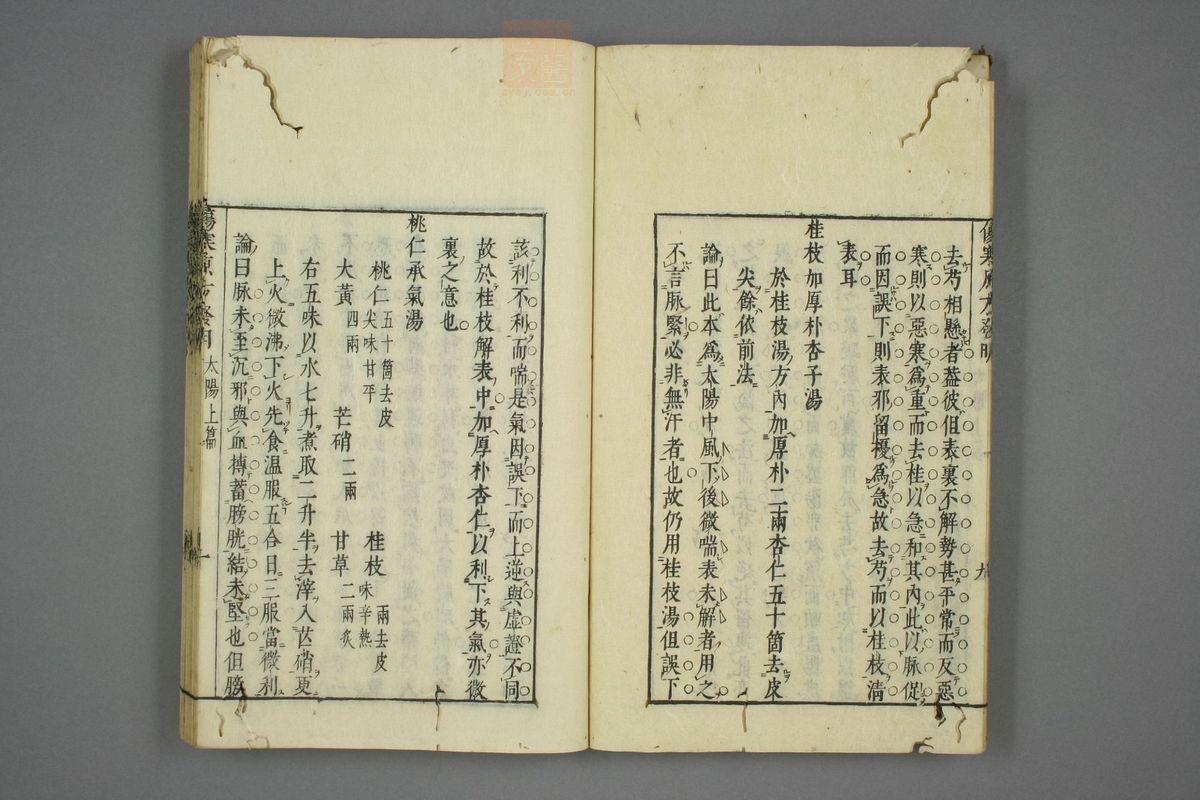 去芍相懸者葢彼但表裏不解勢甚平常而反惡
寒則以惡寒爲重而去桂以急和其內此以脉促
而因誤下則表邪留擾爲急故去芍而以桂枝淸
表耳
桂枝加厚朴杏子湯
於桂枝湯方內加厚朴二兩杏仁五十箇去皮
尖餘依前法
論曰此本爲太陽中風下後微喘表未解者用之
不言脉緊必非無汗者也故仍用桂枝湯但誤下
該利不利而喘是氣因誤下而上逆與虛證不同
故於桂枝解表中加厚朴杏仁以利下其氣亦微
裏之意也
桃仁承氣湯
桃仁五十箇去皮尖味甘平 桂枝二兩去皮味辛熱
大黃四兩 芒硝二兩 甘草二兩炙
右五味以水七升煮取二升半去滓入芒硝更
上火微沸下火先食温服五合日三服當微利
論曰脉未至沉邪與血摶蓄膀胱結未堅也但膀
太陽上篇